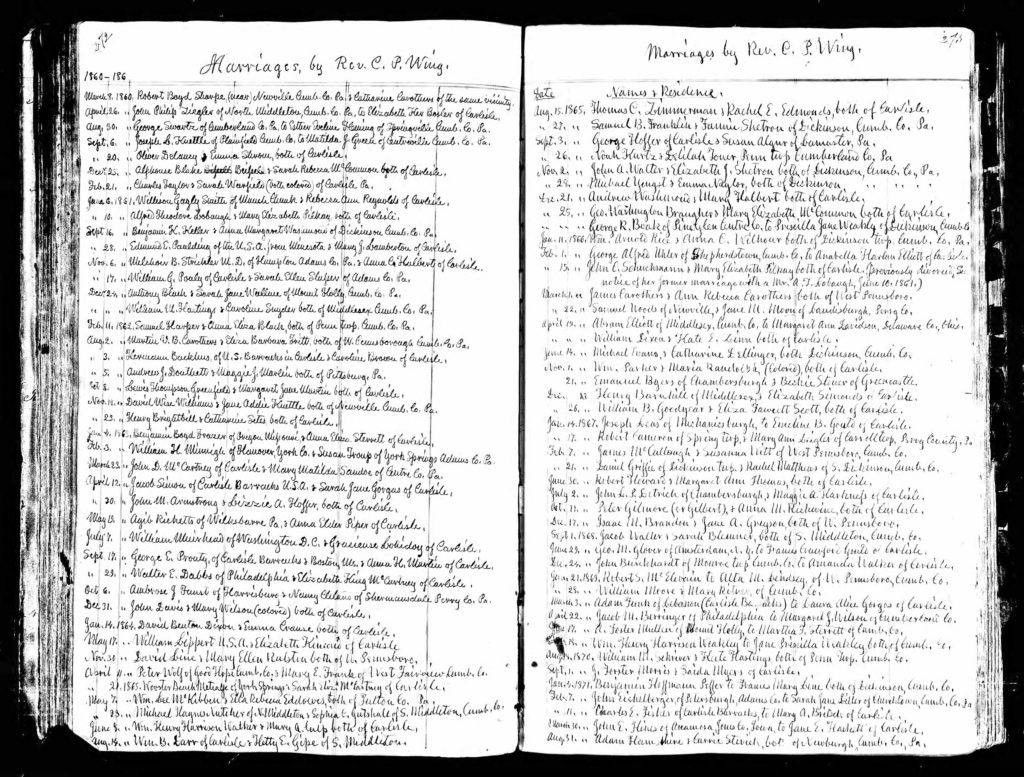 Marriages, by Rev. C. P. Wing.
1860-186
March 8. 1860, Robert Boyd Sharpe, (near) Newville Cumb. Co. Pa. & Catharine Carothers of the same vicinity.
April 26. " John Philip Ziegler of North Middleton, Cumb. Co. Pa. to Elizabeth Bosler of Carlisle.
Aug. 30. " George Swartz of Cumberland Co. Pa. to Esther Fleming of Springville Cumb. Co. Pa.
Sept. 6. " Joseph L. Huettle of Plainfield Cumb. Co. to Matilda J. Green of Centreville Cumb. Co. Pa.
" 20. " Oliver Delancy & Emma both of Carlisle.
Dec. 25. " Alphonse Blake & Sarah Rebecca McCommon both of Carlisle.
Feb. 21. " Charles Taylor & Sarah Warfield (both colored) of Carlisle Pa.
June 6. 1861, Willson Gayly Smith of Mauch Chunk & Rebecca Ann Reynolds of Carlisle.
" 10. " Alfred Theodore Lobaugh & Mary Elizabeth both of Carlisle.
Sept. 16. " Benjamin K. Keller & Anna Margaret Washmood of Dickinson, Cumb. Co. Pa.
" 28. " Edmund E. Paulding of the U.S.A. from Minesota & Mary J. Lamberton of Carlisle.
Nov. 6. " Melchoir B. Strickler M. D. of Hampton Adams Co. Pa. & Anna C. Halbert of Carlisle.
" 17. " William G. Pouly of Carlisle & Sarah Ellen of Adams Co. Pa.
Dec. 24. " Anthony Black & Sarah Jane Wallace of Mount Holly, Cumb. Co. Pa.
" " " William M. Hastings & Caroline Snyder both of Middlesex Cumb. Co. Pa.
Feb. 11. 1862, Samuel Harper & Anna Eliza Black, both of Penn twp. Cumb. Co. Pa.
Aug. 2. " Martin V. B. Carothers & Eliza Barbara Fritt, both of W. Pennsborough Cumb. Co. Pa.
" 3. " Hermann Backhus, of U.S. Barracks in Carlisle & Caroline Brown of Carlisle.
" 5. " Andrew J. Douthett & Maggie J. Martin both of Pittsburg, Pa.
Oct. 2. " Lewis Thompson Greenfield & Margaret Jane Martin both of Carlisle.
Nov. 14. " David Wise Williams & Jane Addie Huettle both of Newville Cumb. Co. Pa.
" 23. " Henry Brightbill & Catharine both of Carlisle.
Jan. 4. 1863, Benjamin Boyd Frazer of Oregon Missouri & Anna Eliza Sterrett of Carlisle.
Feb. 3. " William H. Minnigh of Hanover York Co. & Susan Troup of York Springs Adams Co. Pa.
March 23. " John D. McCartney of Carlisle & Mary Matilda Sandoe of Centre Co. Pa.
April 12. " Jacob Simon of Carlisle Barracks U.S.A. & Sarah Jane Gorgas of Carlisle.
" 30. " John M. Armstrong & Lizzie A. Hoffer, both of Carlisle.
May 13. " Agib Ricketts of Wilksbarre Pa. & Anna Elder Piper of Carlisle.
July 7. " William Muirhead of Washington D.C. & Gracieuse of Carlisle.
Sept. 17. " George E. Prouty, of Carlisle Barracks & Boston, Ms. & Anna H. Martin of Carlisle.
" 29. " Walter E. Dabbs of Philadelphia & Elizabeth King McCartney of Carlisle.
Oct. 6. " Ambrose J. Faust of Harrisburg & Nancy Cleland of Shermansdale Perry Co. Pa.
Dec. 31. " John Davis & Mary Wilson (colored) both of Carlisle.
Jan. 14. 1864, David Benton Dixon & Emma Crouse both of Carlisle.
May 17. " William Lippert U.S.A. & Elizabeth Kincaid of Carlisle
Nov. 30. " David Line & Mary Ellen Ralston both of W. Pennsboro.
April 11. " Peter Wolf of Good Hope Cumb. Co. & Mary E. Frank of West Fairview Cumb. Co.
" 21. 1865, Wooster Beach Metcalf of York Springs & Sarah McCartney of Carlisle.
May 7. " Wm. Lee McKibben & Ella Rebecca both of Fulton Co. Pa.
" 23. " Michael Hagner of N. Middleton & Sophia C. Gutshall of S. Middleton, Cumb. Co.
June 8. " Wm. Henry Harrison Walker & Mary A. Culp both of Carlisle.
Aug. 14. " Wm. B. Larr of Carlisle & Hetty E. Gipe of S. Middleton.
273
Marriages by Rev. C. P. Wing.
Date Names & Residence.
Aug. 15. 1865, Thomas C. Zimmerman & Rachel E. Edmonds, both of Carlisle.
" 27. " Samuel B. Franklin & Fannie Shetron of Dickinson, Cumb. Co. Pa.
Sept. 3. " George Hoffer of Carlisle & Susan Algur of Lancaster, Pa.
" 26. " Noah Hurtz & Delilah Toner, Penn twp Cumberland Co. Pa
Nov. 2. " John A. Walter & Elizabeth J. Shetron both of Dickinson, Cumb. Co. Pa.
" 28. " Michael Youngst & Emma Naylor, both of Dickinson " " "
Dec. 21. " Andrew Washmood & Mary Halbert both of Carlisle.
" 25. " Geo. Washington Braugher & Mary Elizabeth McCommon both of Carlisle.
" " " George R. Beale of Penn Glen Centre Co. to Priscilla Jane Weakly of Dickinson, Cumb. Co.
Jan. 11. 1866, Wm. Arnold Rice & Anna C. Wilhour both of Dickinson twp. Cumb. Co. Pa.
Feb. 1. " George Alfred Miler of Shepherdstown, Cumb. Co. to Annabella Harlan Elliott of Carlisle.
" 15. " John C. Schuchmann & Mary Elizabeth both of Carlisle. (previously divorced, See
notice of her former marriage with a Mr. A. T. Lobaugh, June 10. 1861.)
March " James Carothers & Ann Rebecca Carothers both of West Pennsboro.
" 22. " Samuel Woods of Newville, & Jane M. Moon of Landisburgh, Perry Co.
April 19. " Abram Elliott of Middlesex, Cumb. Co. to Margaret Ann Davidson, Delaware Co., Ohio.
" " " William Dixon & Kate E. Linn both of Carlisle.
June 14. " Michael Evans, & Catharine L. Ellinger, both Dickinson, Cumb. Co.
Nov. 1. " Wm. Parker & Maria (colored), both of Carlisle.
21. " Emanuel Byers of Chambersburgh & Beckie Stover of Greencastle.
Dec. 13 " Henry Barnhill of Middlesex, & Elizabeth Simonds of Carlisle.
" 26. " William B. Goodyear & Eliza Fawcett Scott, both of Carlisle.
Jan. 14. 1867, Joseph Leas of Mechanicsburgh, to Emeline B. Goald of Carlisle.
" 17. " Robert Cameron of Spring twp, & Mary Ann Zeigler of Carroll twp, Perry County, Pa.
Feb. 7. " James McCullough & Susanna Witt of West Pennsboro, Cumb. Co.
" 21. " Daniel Griffie of Dickinson twp. & Rachel Matthews of S. Dickinson, Cumb. Co.
June 30. " Robert Howard & Margaret Ann Thomas, both of Carlisle.
July 2. " John L. P. Detrich of Chambersburgh, & Maggie A. Harkness of Carlisle.
Oct. 17. " Peter Gilmore (or Gilbert), & Anna M. Richwine, both of Carlisle.
Dec. 17. " Isaac M. Brandon & Jane A. Greyson, both of W. Pennsboro.
Sept. 1. 1868. Jacob Waller & Sarah both of S. Middleton, Cumb. Co.
June 23. " Geo. M. Glover of Amsterdam, N. Y. to Frances Crawford Guild of Carlisle.
Dec. 24. " John Burckhardt of Monroe twp Cumb. Co. to Amanda Walker of Carlisle.
Jan. 21. 1869, Robert S. McElwain to Alta M. Lindsey, of W. Pennsboro, Cumb. Co.
" 25. " William Moore & Mary Ritner, of Cumb. Co.
March 3. " Adam Fenn of Lebanon (Carlisle Barracks) to Laura Alice Gorgas of Carlisle.
April 22. " Jacob M. Barringer of Philadelphia to Margaret J. Wilson of Cumberland Co.
17. " A. Foster Mullin of Mount Holly, to Martha J. Sterrett of Cumb. Co.
" Wm. Henry Harrison Weakley to Jane Priscilla Weakley both of Cumb. Co.
1870, William M. Scriver & Kate Hastings both of Penn Twp. Cumb. Co.
Sept. 1. " J. Forster Morris & Saida Myers of Carlisle.
Jan. 1871, Benjamin Hoffmann Peffer to Frances Mary Line both of Dickinson, Cumb. Co.
Feb. 7. " John Eichelberger, of Petersburgh, Adams Co. to Sarah Jane Sidler of Churchtown, Cumb. Co. Pa
" 11. " Charles E. Fisher of Carlisle Barracks, to Mary A. Bretch of Carlisle.
March 30. " John E. Hines of Anamosa, Jones Co. Iowa, to Jane E. Haskell of Carlisle.
Aug. 31. " Adam & Carrie both of Newburgh, Cumb. Co., Pa.